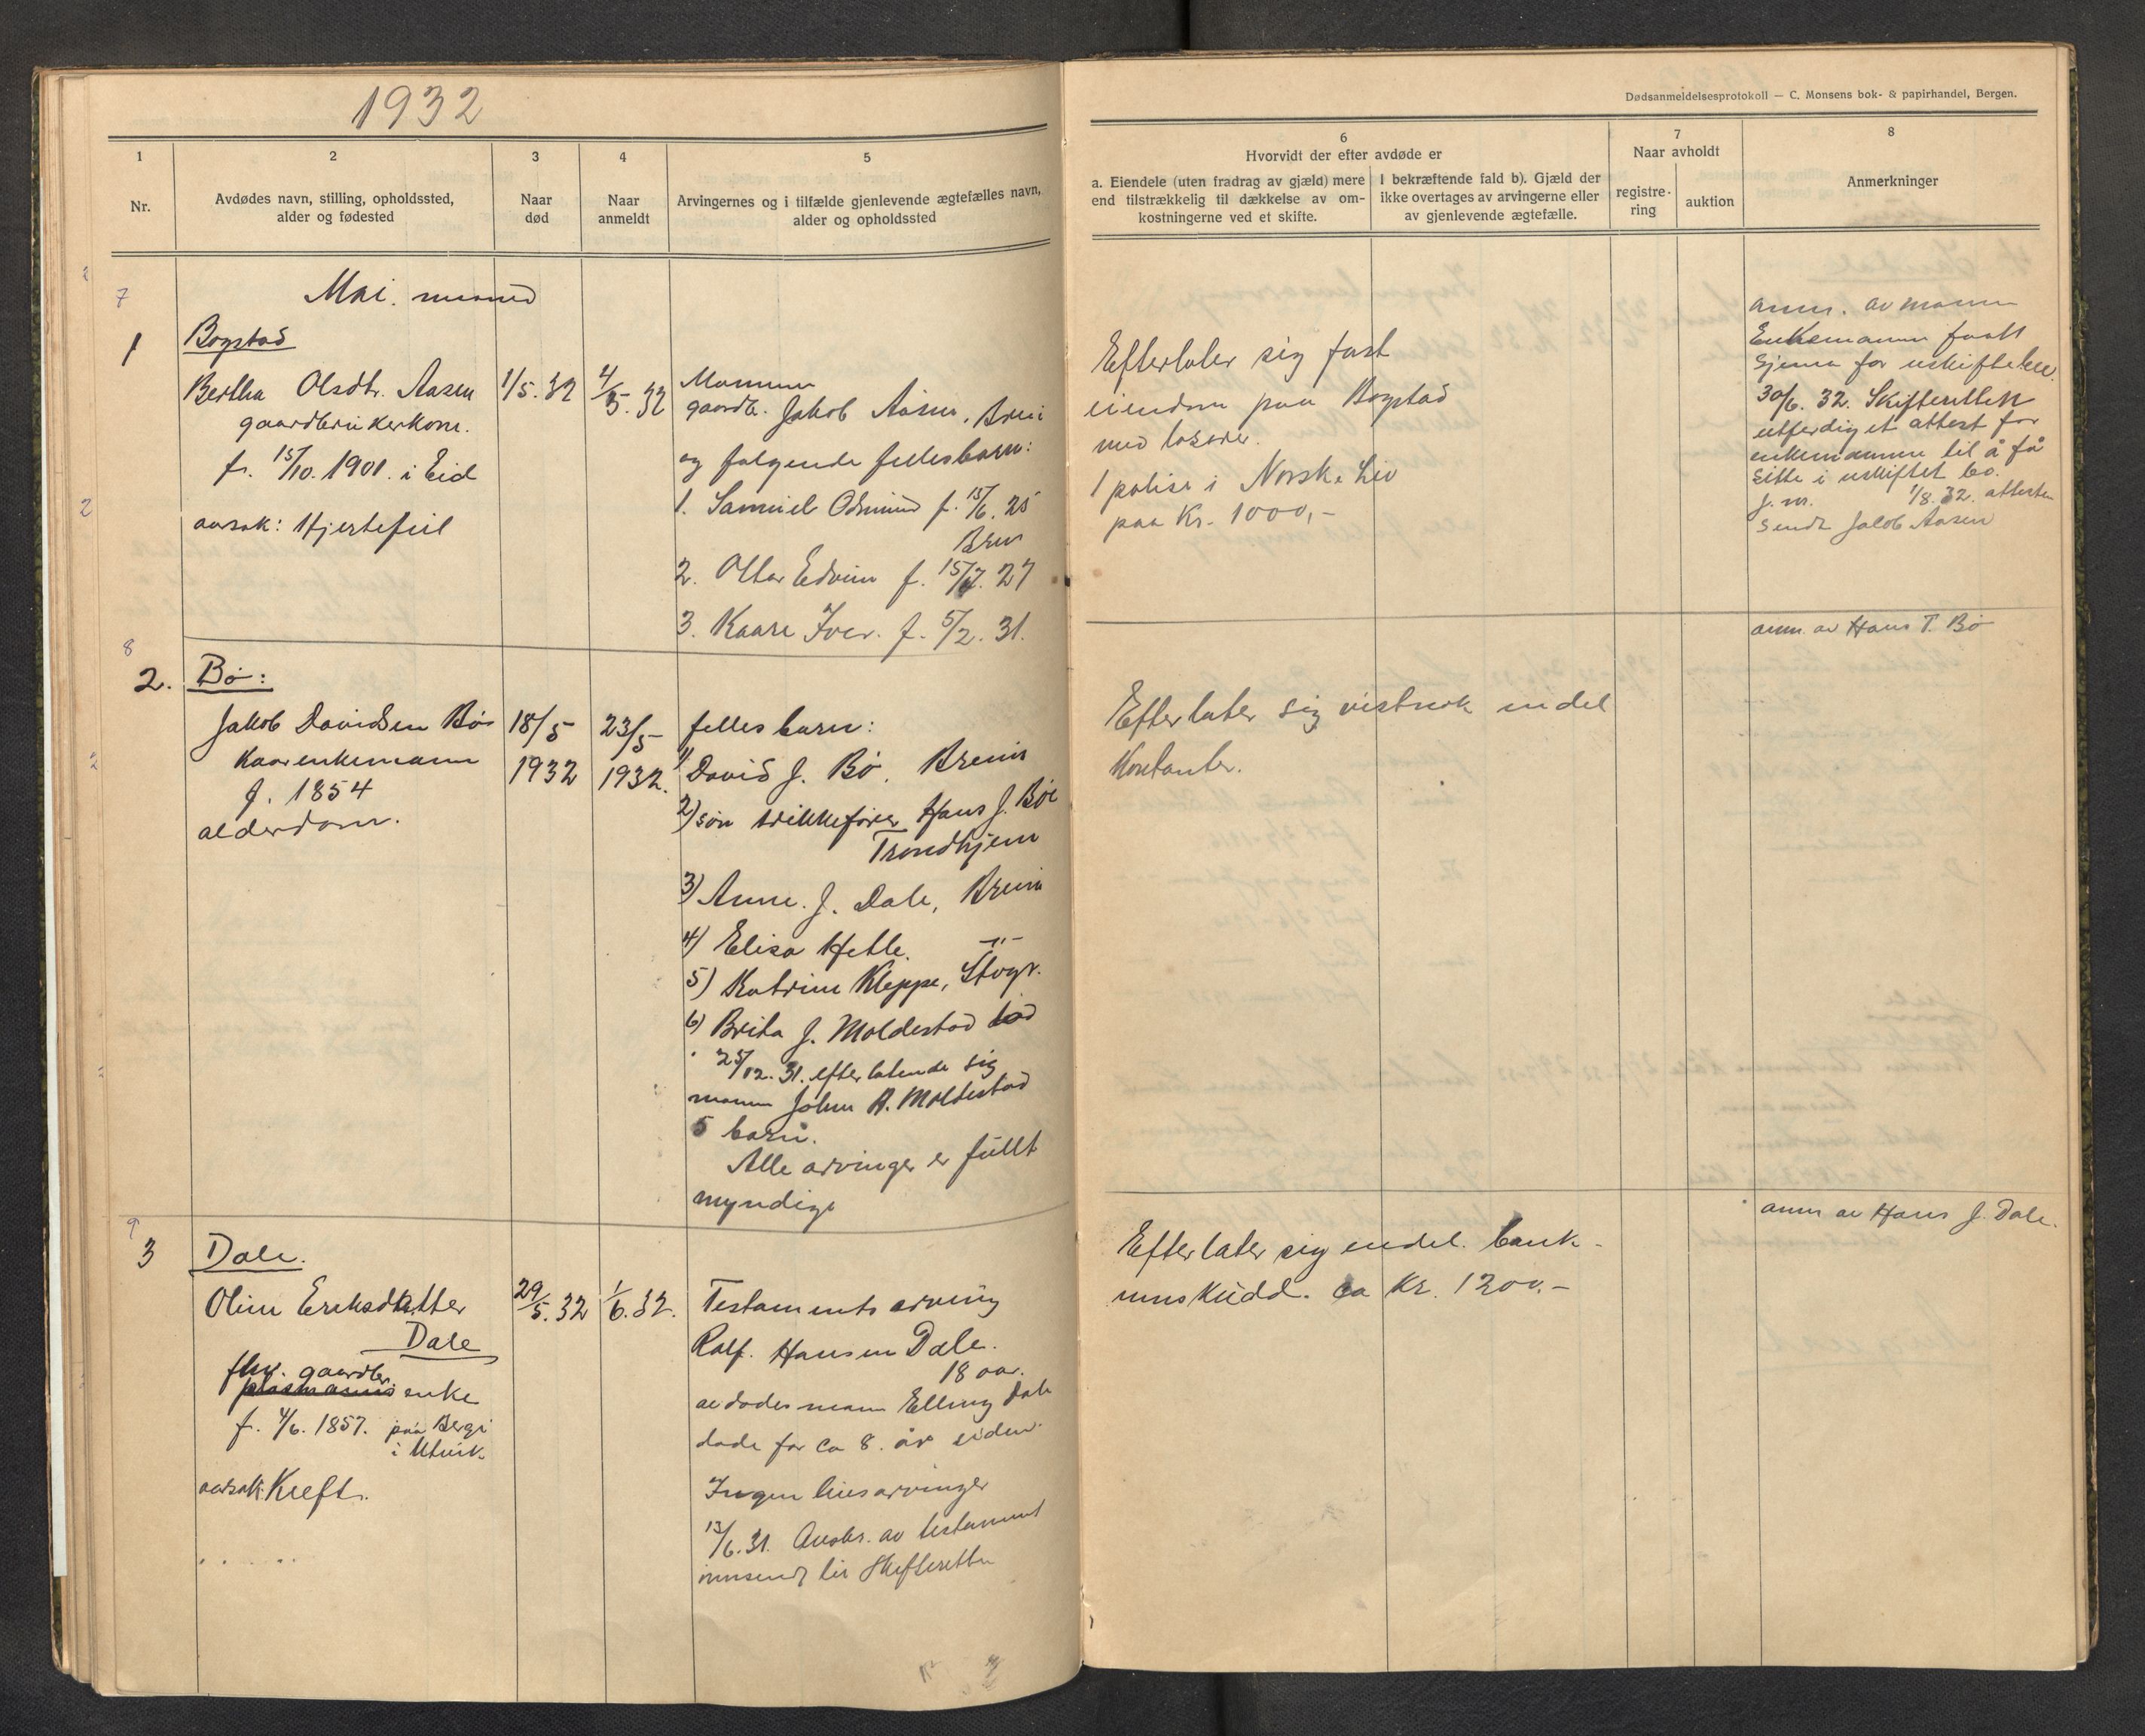 1932
1
2
3
4
5
Nr.
Avdødes navn, stilling, opholdssted,
alder og fødested
Naar
død
Naar
anmeldt
Arvingernes og i tilfælde gjenlevende ægtefælles navn,
alder og opholdssted
7
Mai. maaned
1
Bogstad
Bertha Olsdtr. Aasen
gaardbrukerkone.
f. 15/10. 1901. i Eid
aarsak: Hjertefeil
1/5. 32
4/5. 32
Mannen
gaardb. Jakob Aasen, Breim
og følgende fellesbarn:
1. Samuel Odmund f. 15/6. 25
Breim
2. Ottar Edvin f. 15/7. 27
3. Kaare Iver. f. 5/2. 31.
8
2.
Bø:
Jakob Davidsen Bø
Kaarenkemann
f. 1854
alderdom.
18/5
1932
23/5
1932.
felles barn:
1) David J. Bø. Breim
2) søn trikkefører Hans J. Bø
Trondhjem
3) Anne. J. Dale, Breim
4) Elisa Hetle. -"-
5) Katrine Kleppe, Stogr.
6) Brita J. Moldestad død
25/12. 31. efterlatende sig
mann John A. Moldestad
5 barn.
Alle arvinger er fullt
myndige
9
3
Dale.
Oline Eriksdatter
Dale
fhv. gaardbr.
plasmanns enke
f. 4/6. 1857. paa Berge
i Utvik.
aarsak: Kreft.
29/5. 32
1/6. 32.
Testaments arving
Ralf. Hansen Dale.
18 aar.
avdødes mann Elling Dale
døde for ca 8. år siden.
Ingen livsarvinger
13/6. 31. av testament
innsendt til Skifteretten
Dødsanmeldelsesprotokoll — C. Monsens bok- & papirhandel, Bergen.
6
Hvorvidt der efter avdøde er
a. Eiendele (uten fradrag av gjæld) mere
end tilstrækkelig til dækkelse av om-
kostningerne ved et skifte.
I bekræftende fald b). Gjæld der
ikke overtages av arvingerne eller
av gjenlevende ægtefælle.
7
Naar avholdt
registre-
ring
auktion
8
Anmerkninger
Efterlater sig fast
eiendom paa Bogstad
med løsøre.
1 polise i Norske Liv
paa Kr. 1000,-
anm. av mannen
Enkemannen faatt
skjema for uskiftebev.
30/6. 32. Skifteretten
utferdiget attest for
enkemannen til å få
sitte i uskiftet bo.
J. nr. 1/8. 32. attesten
sendt Jakob Aasen
anm. av Hans T. Bø
Efterlater sig vistnok endel
Kontanter.
anm av Hans J. Dale.
Efterlater sig endel. bank-
innskudd. ca Kr. 1200.-